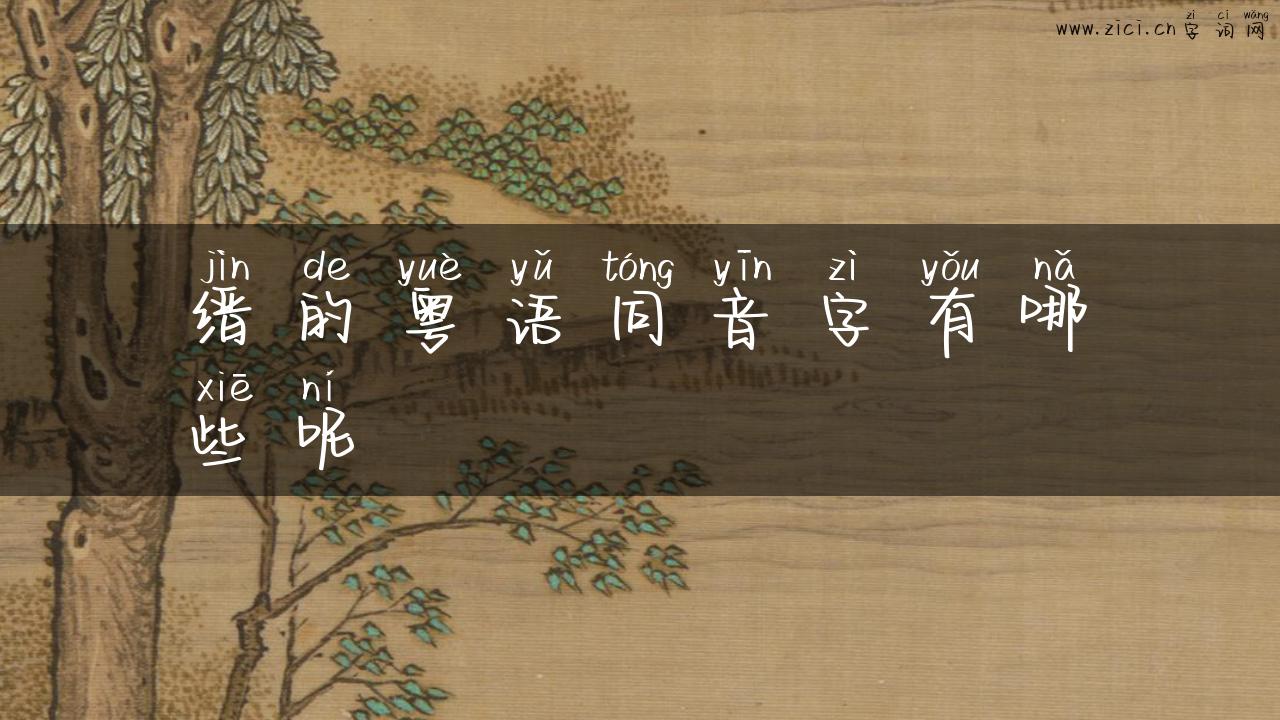 zì cí wǎng
www.zici.cn 字词网
jìn de yuè yǔ tóng yīn zì yǒu nǎ
缙的粤语同音字有哪
xiē ní
些呢